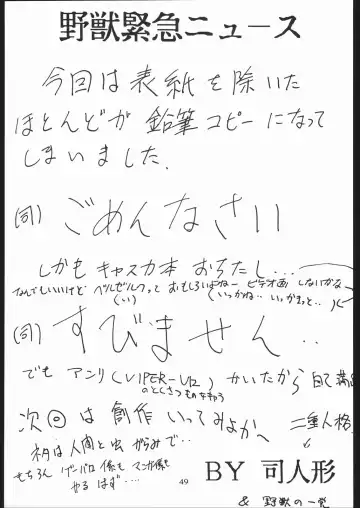 野獣緊急ニュース
今回は表紙を除いた
ほとんどが鉛筆コピーになって
しまいました.
(同) ごめんなさい
しかもキャスカ本おちたし...
なんでもいいけどベルゼルブっておもしろいよねー ビデオ画しないかな
(いつかね.. いつかきっと..)
(同) すびません..
でもアンリ(VIPER-V12)かいたから自己満足
のとくさつものを救う
次回は創作いってみよかへ 二重人格
ネタは人間と虫がらみで..
もちろんゲーパロ係もマンガ係も
やるはず....
49
BY 司人形
& 野獣の一発